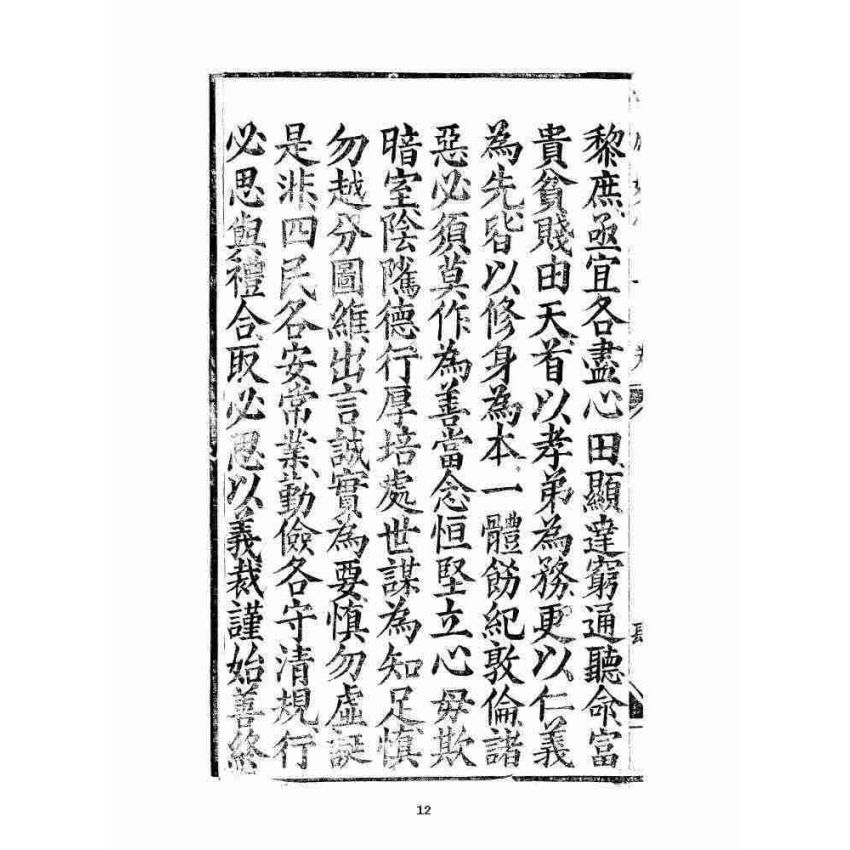 黎庶亟宜各盡心田顯達窮通聽命富
貴貧賤由天首以孝弟為務更以仁義
為先皆以修身為本一體飭紀敦倫諸
惡必須莫作為善當念恒堅立心毋欺
暗室陰隲德行厚培處世謀為知足慎
勿越分圖維出言誠實為要慎勿虛誕
是非四民各安常業勤儉各守清規行
必思與禮合取必思以義裁謹始善終
12